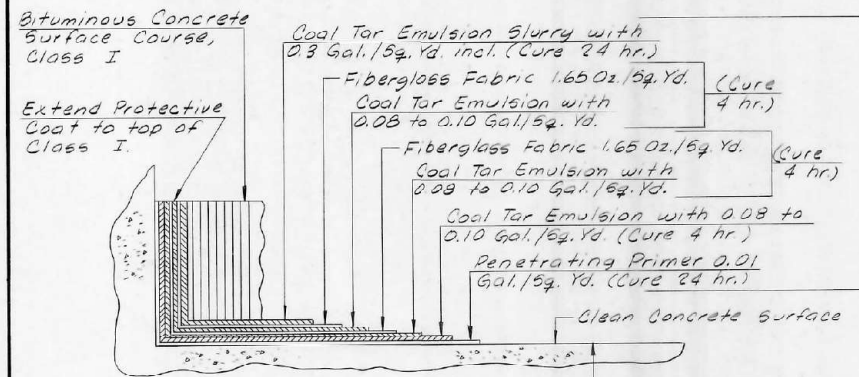 Bituminous Concrete
Surface Course,
Class I
Extend Protective
Coat to top of
Class I.
Coal Tar Emulsion Slurry with
0.3 Gal./Sq. Yd. incl. (Cure 24 hr.)
Fiberglass Fabric 1.65 Oz./Sq. Yd.
Coal Tar Emulsion with
0.08 to 0.10 Gal./Sq. Yd.
(Cure
4 hr.)
Fiberglass Fabric 1.65 Oz./Sq. Yd.
Coal Tar Emulsion with
0.08 to 0.10 Gal./Sq. Yd.
(Cure
4 hr.)
Coal Tar Emulsion with 0.08 to
0.10 Gal./Sq. Yd. (Cure 4 hr.)
Penetrating Primer 0.01
Gal./Sq. Yd. (Cure 24 hr.)
Clean Concrete Surface